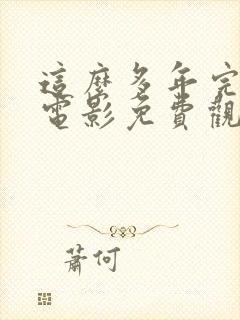 這麼多年完
電影免費觀
蕭何